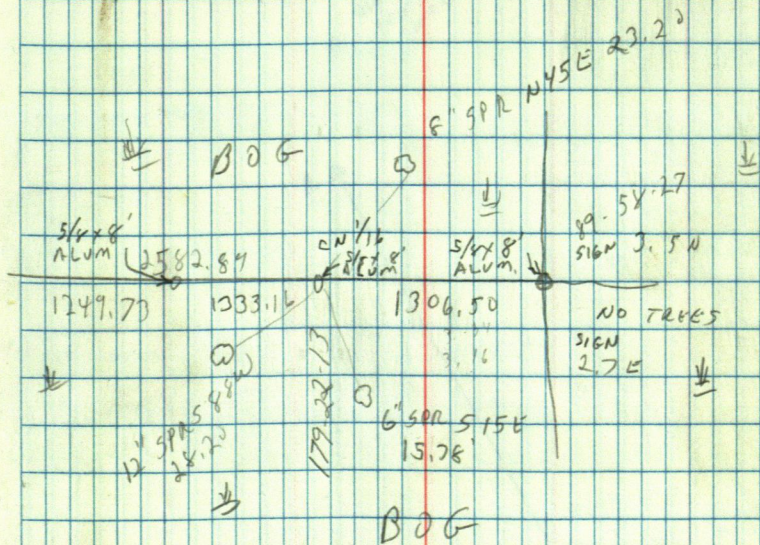 8" SPR N45E 23.20
BOG
5/8 x 8'
ALUM
2582.89
CN 1/16
5/8 x 8'
ALUM
5/8 x 8'
ALUM.
89-58-27
SIGN 3.5 N
1249.73
1333.16
1306.50
NO TREES
SIGN
2.7 E
3.16
12" SPR S 88W
28.20
6" SPR S 15E
15.78'
BOG